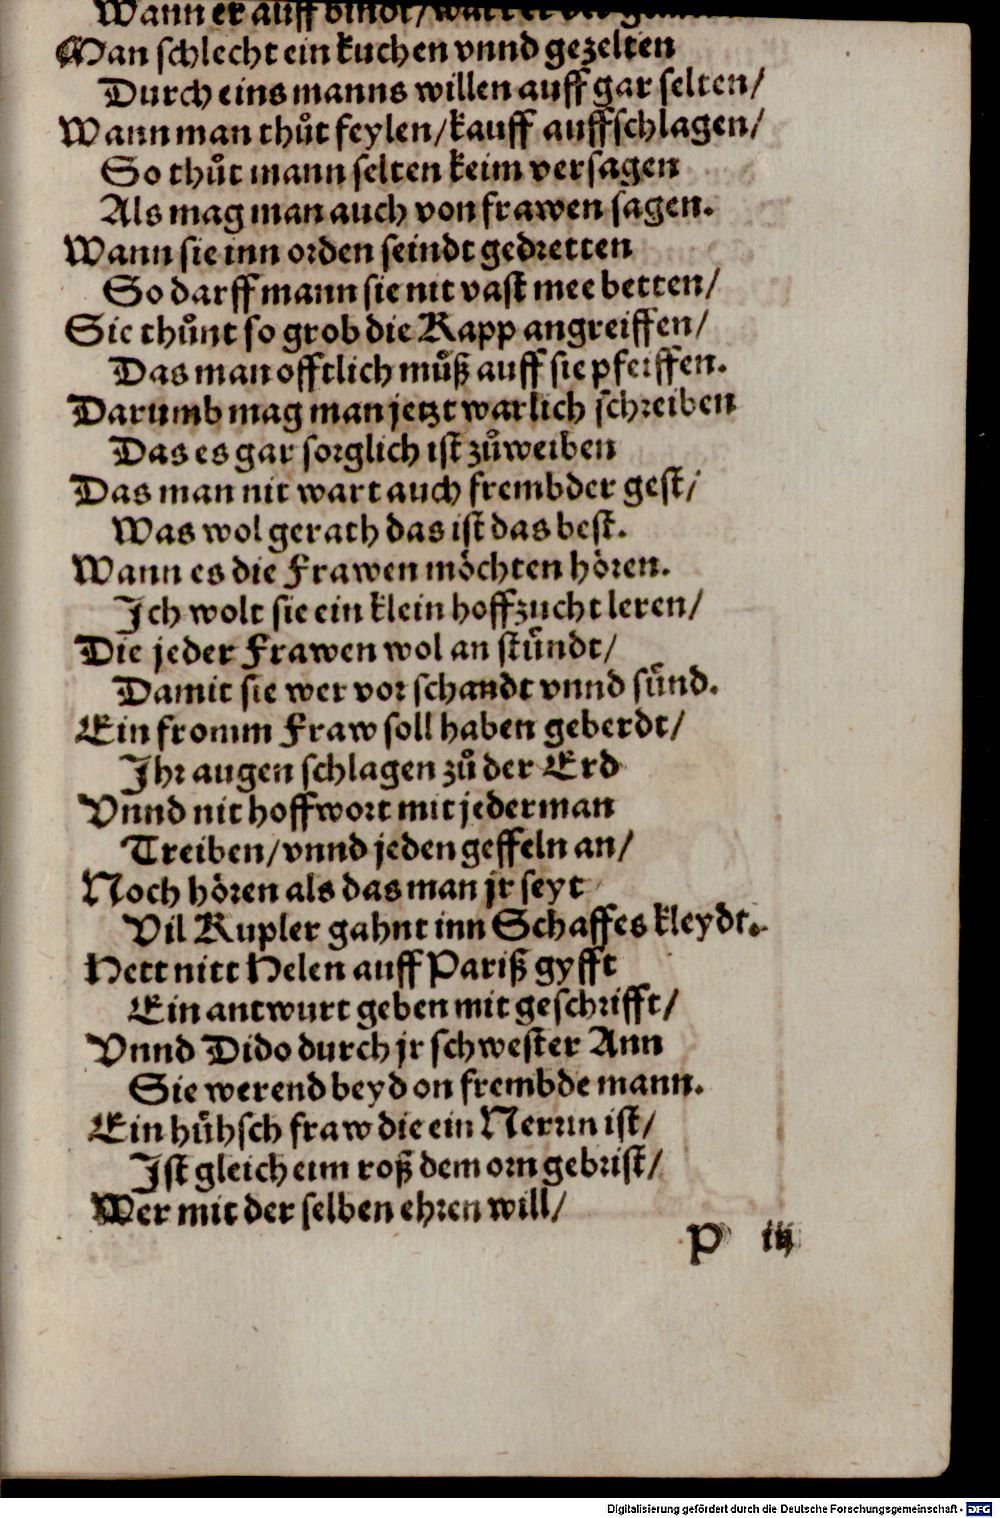 Wann er auff bindt/
Man schlecht ein kuchen vnnd gezelten
Durch eins manns willen auff gar selten/
Wann man thůt feylen/kauff auffschlagen/
So thůt mann selten keim versagen
Als mag man auch von frawen sagen.
Wann sie inn orden seindt gedretten
So darff mann sie nit vast mee betten/
Sie thůnt so grob die Kapp angreiffen/
Das man offtlich můß auff sie pfeiffen.
Darumb mag man jetzt warlich schreiben
Das es gar sorglich ist zůweiben
Das man nit wart auch frembder gest/
Was wol gerath das ist das best.
Wann es die Frawen möchten hören.
Ich wolt sie ein klein hoffzucht leren/
Die jeder Frawen wol an stündt/
Damit sie wer vor schandt vnnd sünd.
Ein fromm Fraw soll haben geberdt/
Ihr augen schlagen zů der Erd
Vnnd nit hoffwort mit jederman
Treiben/vnnd jeden geffeln an/
Noch hören als das man jr seyt
Vil Kupler gahnt inn Schaffes kleydt.
Hett nitt Helen auff Pariß gyfft
Ein antwurt geben mit geschrifft/
Vnnd Dido durch jr schwester Ann
Sie werend beyd on frembde mann.
Ein hühsch fraw die ein Nerrin ist/
Ist gleich eim roß dem orn gebrist/
Wer mit der selben ehren will/
P iij
Digitalisierung gefördert durch die Deutsche Forschungsgemeinschaft - DFG